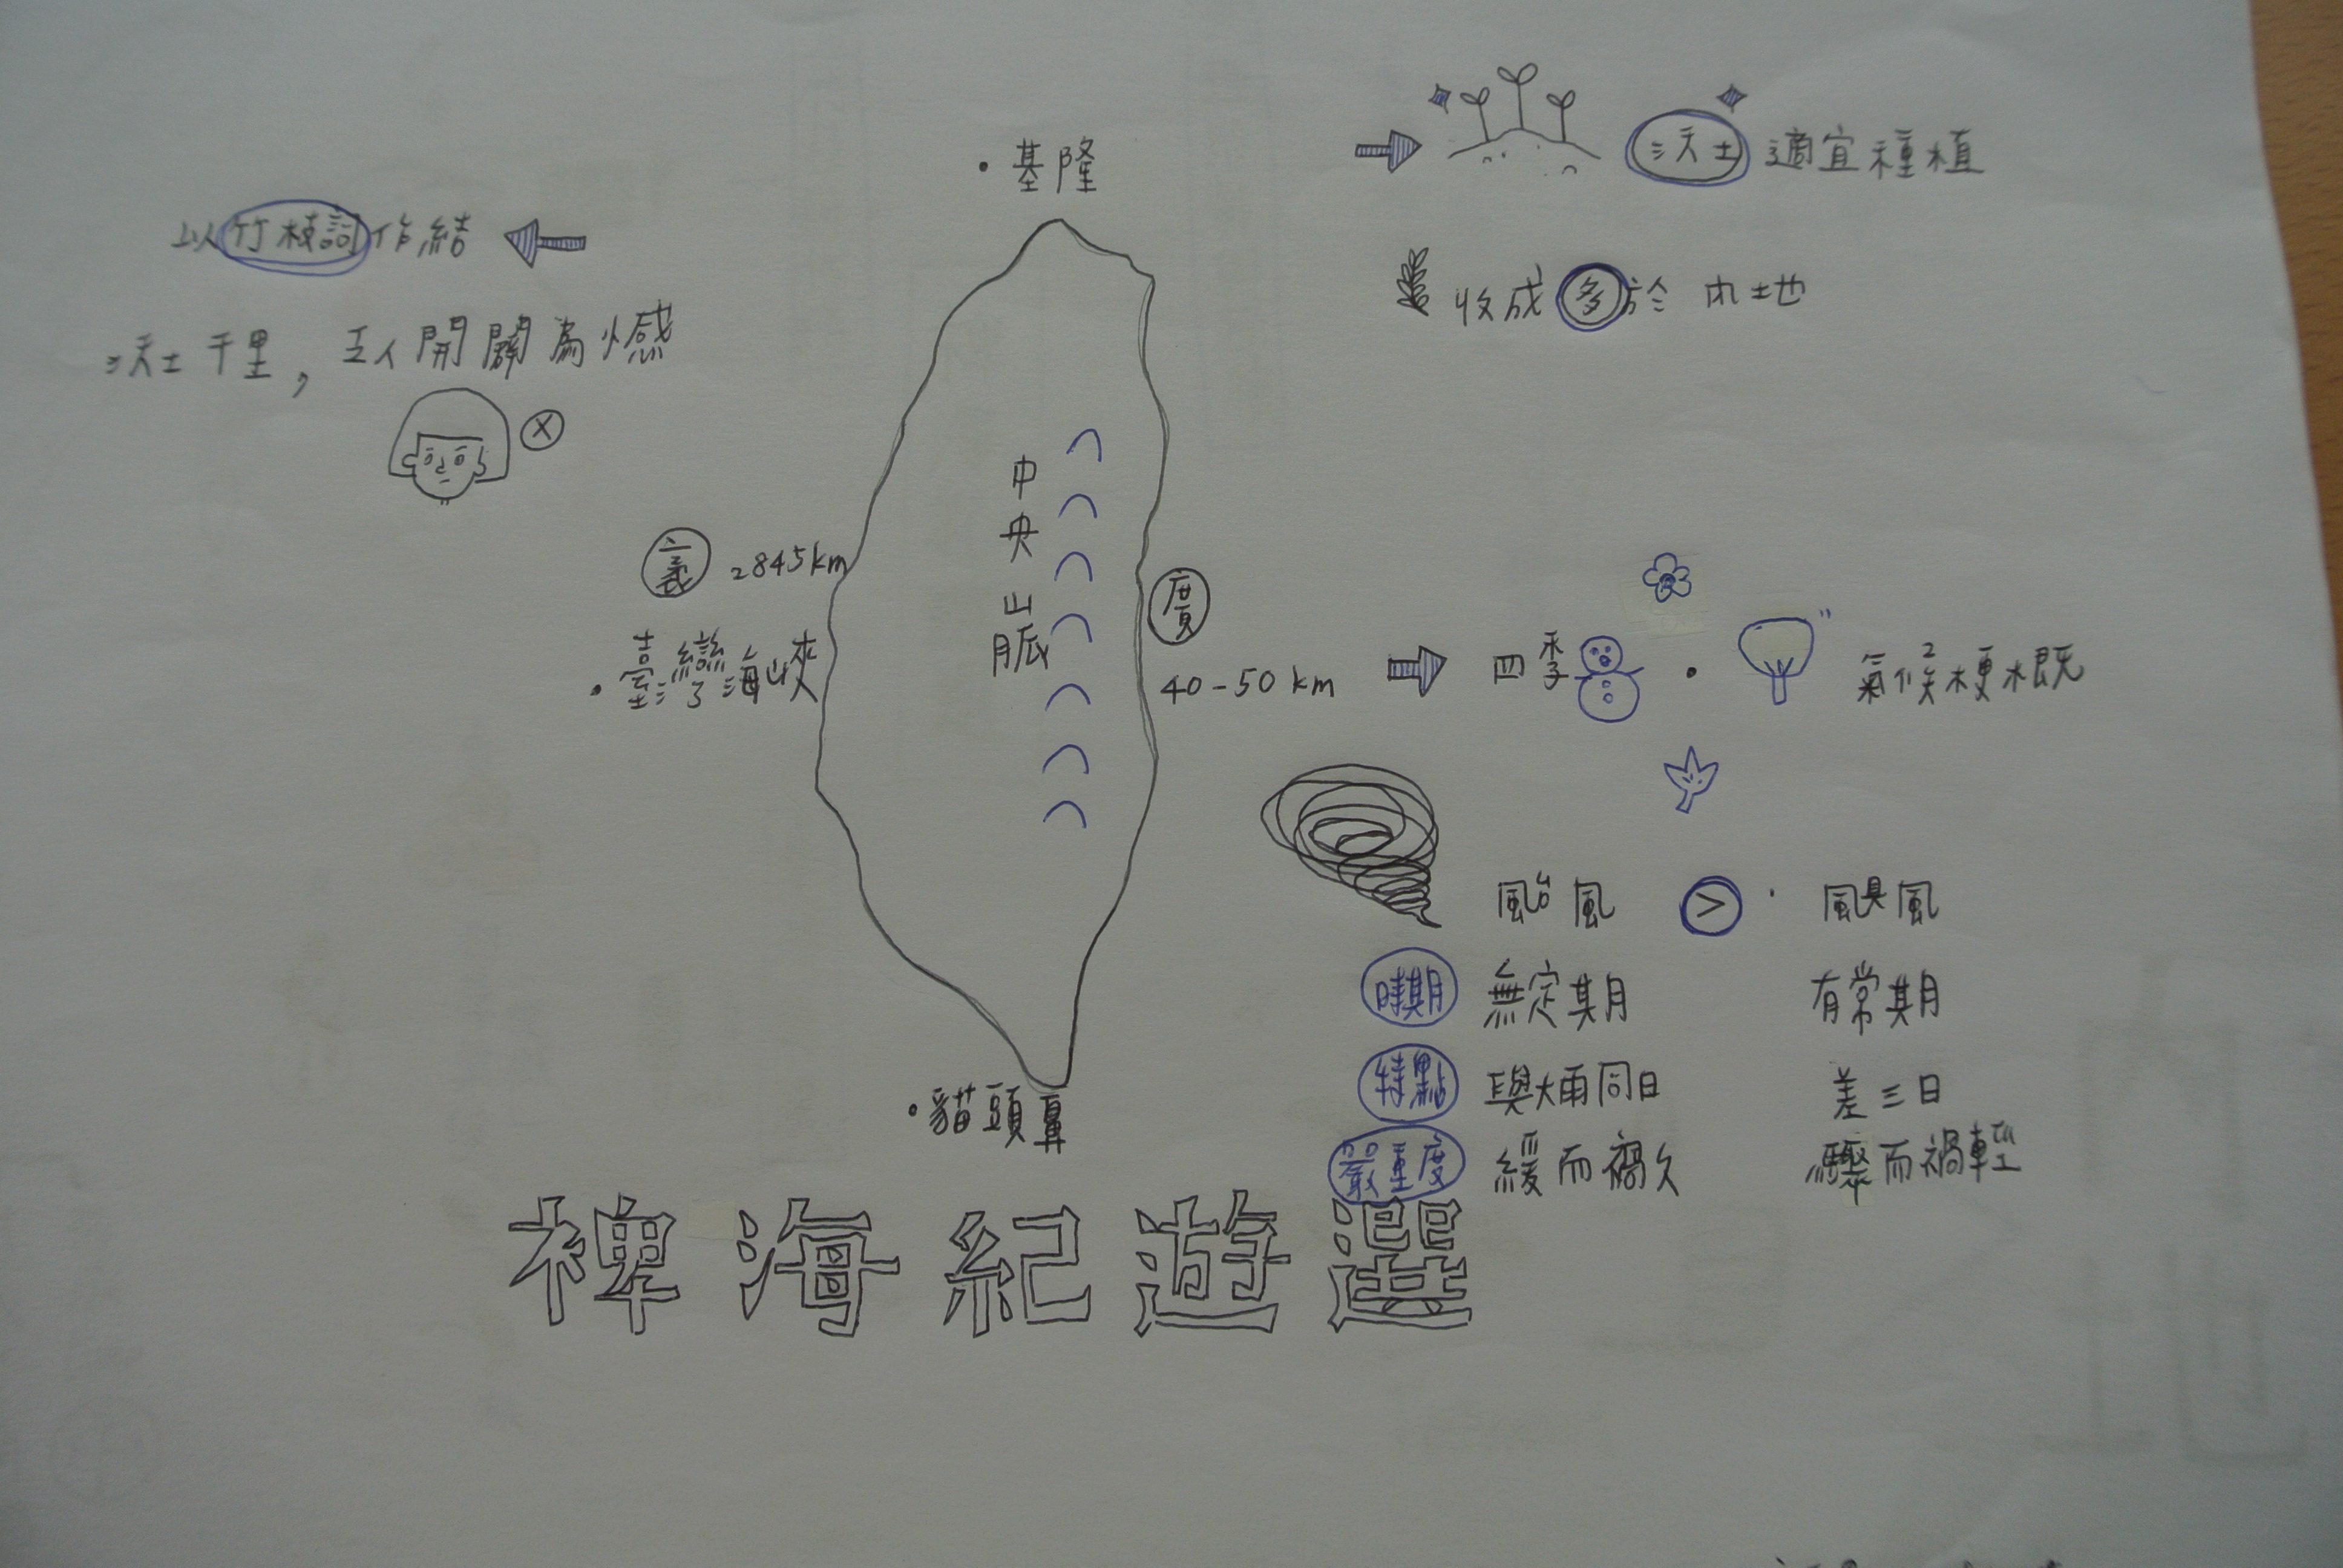 基隆
沃土適宜種植
收成多於內地
以竹枝詞作結
沃土千里,工人開闢為憾
中央山脈
袤 2845km
臺灣海峽
廣
40-50 km
四季 氣候梗概
颱風 > 颶風
時期 無定期 有常期
特點 與大雨同日 差三日
嚴重度 緩而禍久 驟而禍輕
貓頭鼻
裨海紀遊選